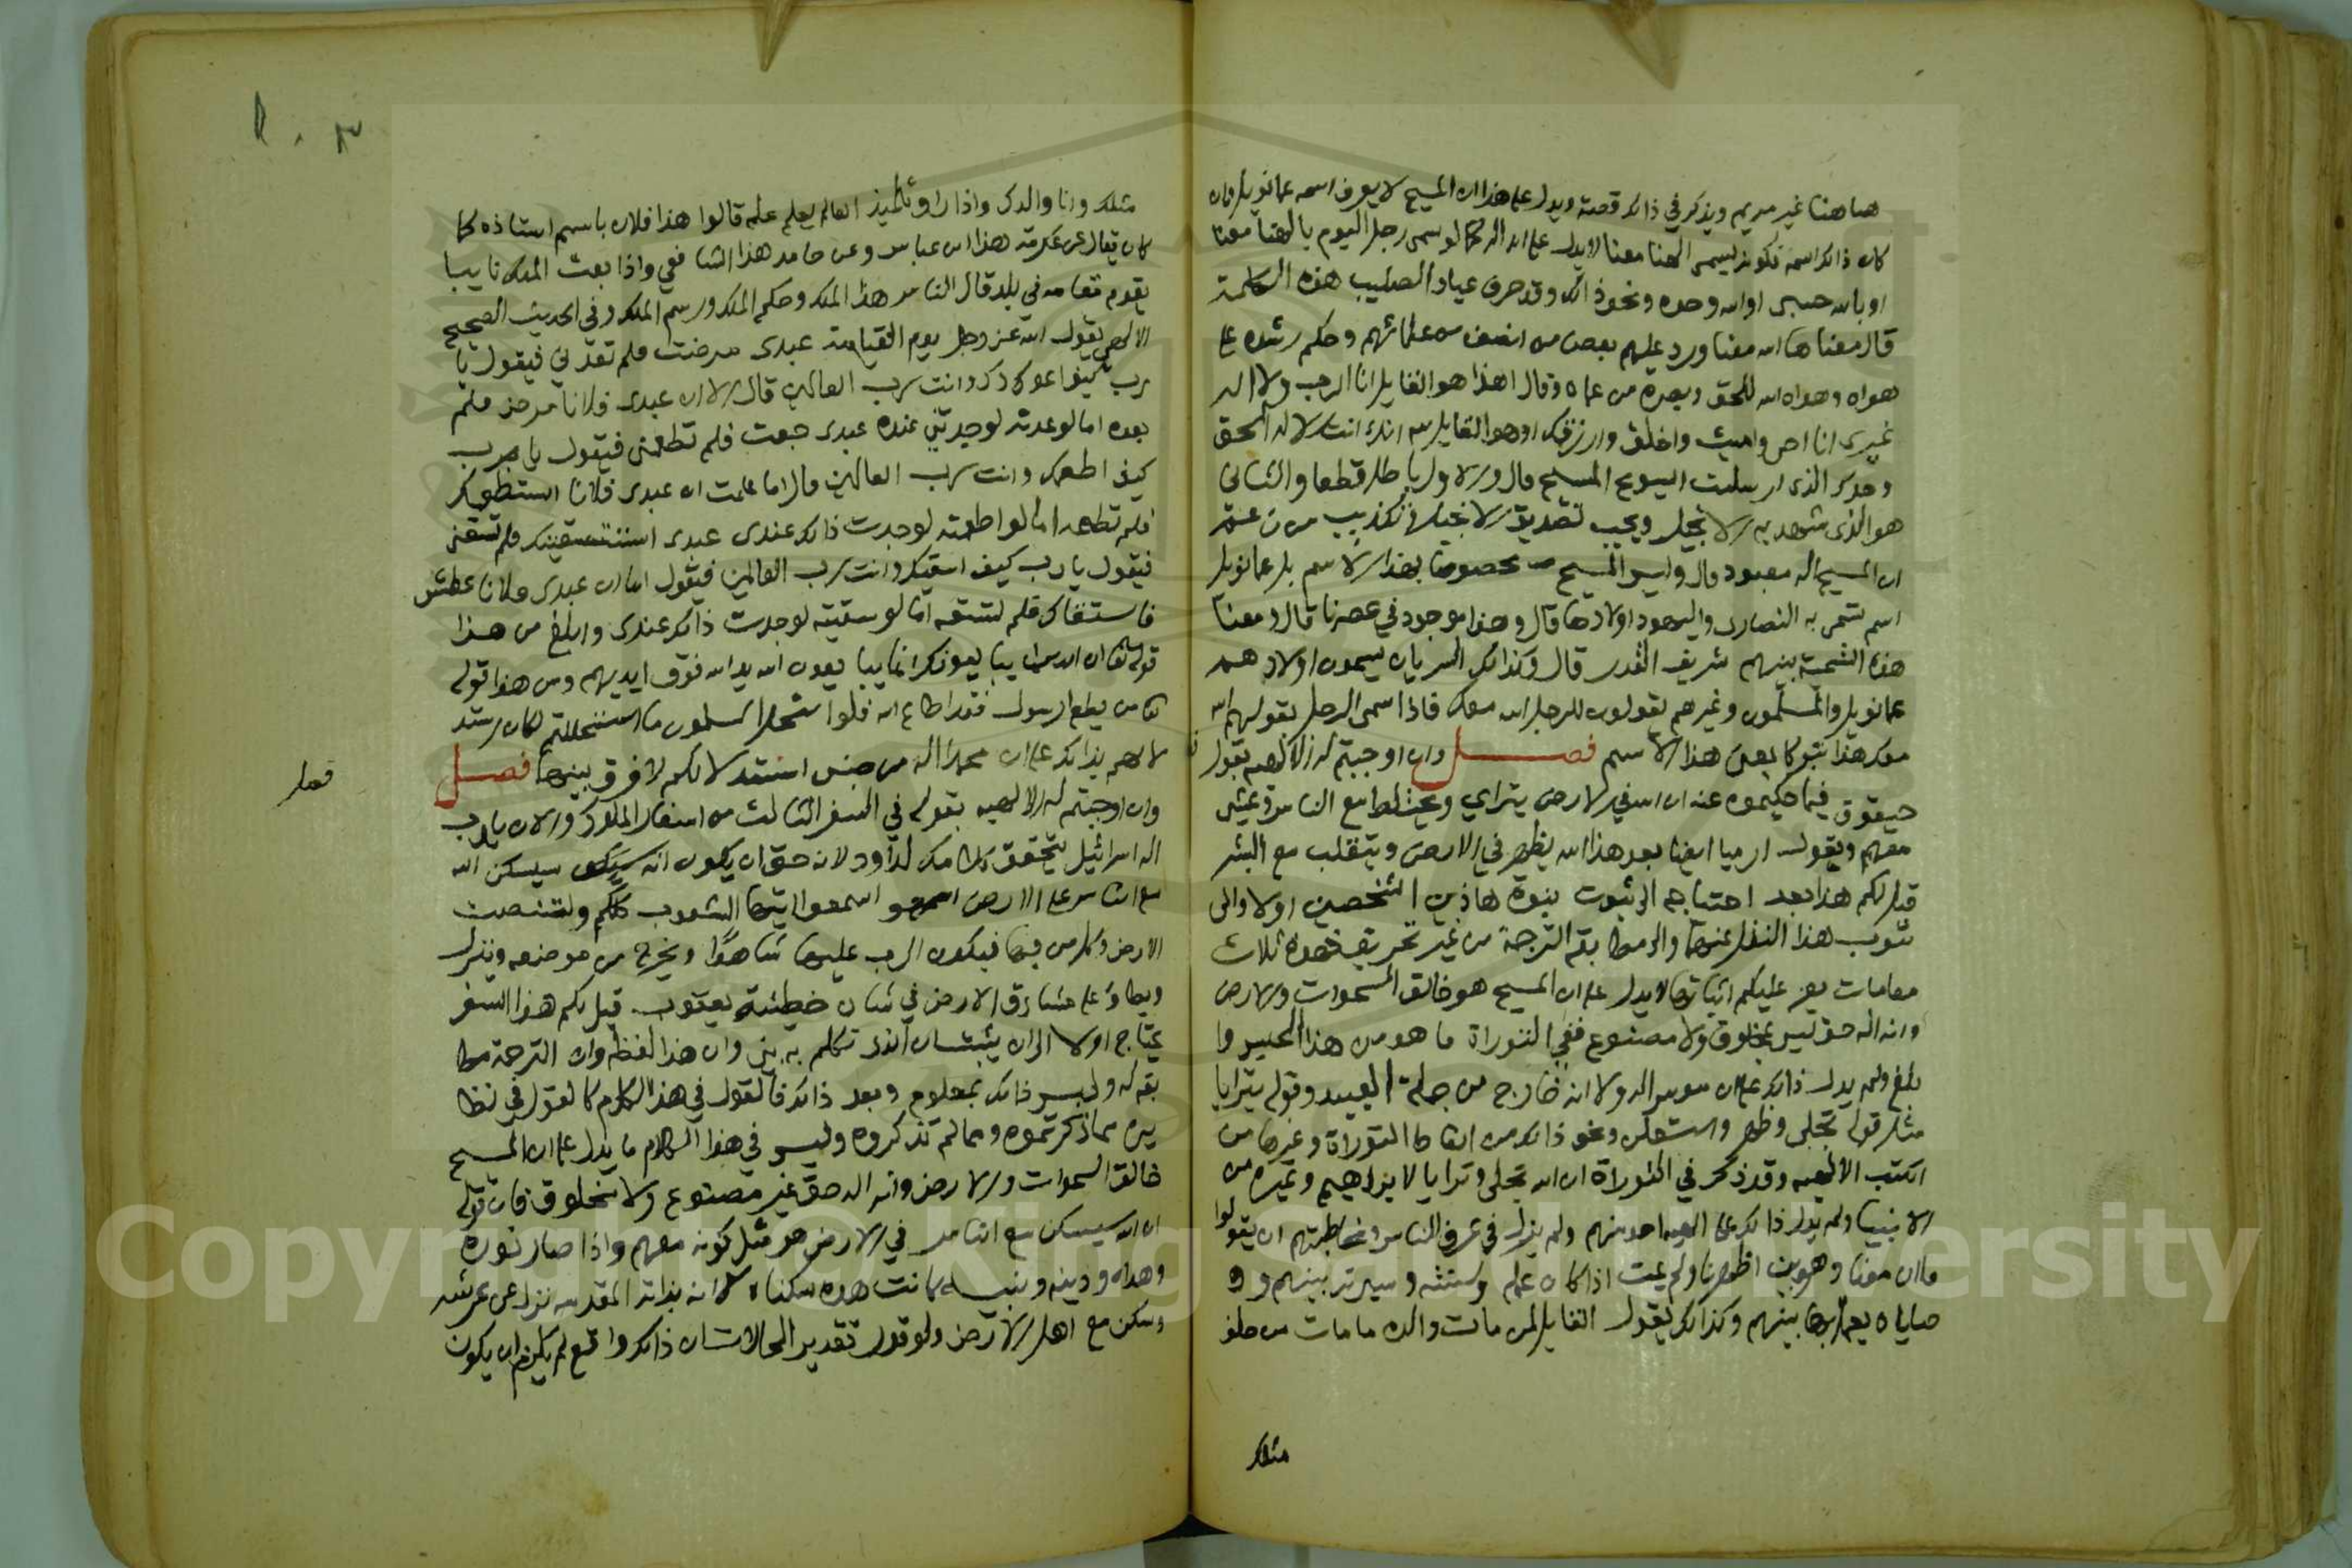 هاهنا غير مريم ويذكر في ذالك قصة ويدل علي هذا ان المسيح لا يعرف اسمه عمانويل وان
كان ذالك اسمه فكونه يسمى الهنا معنا لا يدل علي انه اله كما لو سمى رجل اليوم بالهنا معنا
او بالله حسبي او الله وحده ونحو ذالك وقد حرف عباد الصليب هذه الكلمة
قال معناها الله معنا ورد عليهم بعض من انصف من علمائهم وحكم رشده علي
هواه وهداه الله للحق وبصره من عماه وقال اهذا هو القايل انا الرب ولا اله
غيري انا احي واميت واخلق وارزق ام هو القايل لله انك انت الاله الحق
وحدك الذي ارسلت اليسوع المسيح قال والاول باطل قطعا والثاني
هو الذي شهد به الانجيل ويجب تصديق الانجيل وتكذيب من زعم
ان المسيح اله معبود قال وليس المسيح مخصوصا بهذا الاسم بل عمانويل
اسم تسمى به النصارى واليهود اولادها قال وهذا موجود في عصرنا قال ومعنا
هذه التسمية بينهم شريف القدر قال وكذالك السريان يسمون اولادهم
عمانويل والمسلمون وغيرهم يقولون للرجل الله معك فاذا سمى الرجل بقولهم الله
معك هذا تبركا بمعنى هذا الاسم فصل وان اوجبتم له الالهيه بقول
حبقوق فيما حكيتموه عنه ان الله في الارض يتراي ويختلط مع الناس ويمشي
معهم ويقول ارميا ايضا بعد هذا الله يظهر في الارض ويتقلب مع البشر
قيل لكم هذا بعد احتياجه الى ثبوت نبوة هاذين الشخصين اولا والى
ثبوت هذا النقل عنهما والى مطابقة الترجمة من غير تحريف فهذه ثلاث
مقامات يعز عليكم اثباتها لا يدل علي ان المسيح هو خالق السموات والارض
وانه اله حق ليس بمخلوق ولا مصنوع ففي التوراة ما هو من هذا الجنس وا
بلغ ولم يدل ذالك علي ان موسى اله ولا انه خارج من جملة العبيد وقوله يترايا
مثل قوله تجلى وظهر واستعلن ونحو ذالك من الفاظ التوراة وغيرها من
الكتب الالهيه وقد ذكر في التوراة ان الله تجلى وترايا لابراهيم وغيره من
الانبيا ولم يدل ذالك علي الهيه احد منهم ولم يزل في عرف الناس ومخاطبتهم ان يقولوا
فلان معنا وهو بين اظهرنا ولم يمت اذا كان علمه وسنته وسيرته بينهم وو
صاياه يعمل بها بينهم وكذالك يقول القايل لمن مات والده ما مات من خلف
مثلك
مثلك وانا والدك واذا راو تلميذ العالم يعلم علمه قالوا هذا فلان باسم استاذه كما
كان يقال عن عكرمة هذا ابن عباس وعن حامد هذا الشافعي واذا بعث الملك نايبا
يقوم مقامه في بلد قال الناس هذا الملك وحكم الملك ورسم الملك وفي الحديث الصحيح
الالهي يقول الله عز وجل يوم القيامة عبدي مرضت فلم تعدني فيقول يا
رب كيف اعودك وانت رب العالمين قال اما ان عبدي فلانا مرض فلم
تعده اما لو عدته لوجدتني عنده عبدي جعت فلم تطعمني فيقول يا رب
كيف اطعمك وانت رب العالمين قال اما علمت ان عبدي فلانا استطعمك
فلم تطعمه اما لو اطعمته لوجدت ذالك عندي عبدي استسقيتك فلم تسقني
فيقول يا رب كيف اسقيك وانت رب العالمين فيقول اما ان عبدي فلانا عطش
فاستسقاك فلم تسقه اما لو سقيته لوجدت ذالك عندي وابلغ من هذا
قوله تعالى ان الذين يبايعونك انما يبايعون الله يد الله فوق ايديهم ومن هذا قوله
تعالى من يطع الرسول فقد اطاع الله فلو استحل المسلمون ما استحللتم لكان استد
لالهم بذالك علي ان محمدا اله من جنس استدلالكم لا فرق بينهما فصل
فصل
وان اوجبتم له الالهيه بقوله في السفر الثالث من اسفار الملوك والان يا رب
اله اسرائيل يتحقق كلامك لداود لانه حق ان يكون انه سيسكن الله
مع الناس علي الارض اسمعوا ايتها الشعوب كلكم ولتنصت
الارض وكل من فيها فيكون الرب عليها شاهدا ويخرج من موضعه وينزل
ويطا علي مشارق الارض في شان خطيئة يعقوب قيل لكم هذا السفر
يحتاج اولا الى ان يثبت ان الذي تكلم به نبي وان هذا لفظه وان الترجمة مطا
بقه له وليس ذالك بمعلوم وبعد ذالك فالقول في هذا الكلام كالقول في نظا
يره مما ذكرتموه ومما لم تذكروه وليس في هذا الكلام ما يدل علي ان المسيح
خالق السموات والارض وانه اله حق غير مصنوع ولا مخلوق فان قوله
ان الله سيسكن مع الناس في الارض هو مثل كونه معهم واذا صار نوره
وهداه ودينه ونبيه كانت هذه سكناه لا انه بذاته المقدسه نزل عن عرشه
وسكن مع اهل الارض ولو قدر تقدير المحالات ان ذالك واقع لم يلزم ان يكون